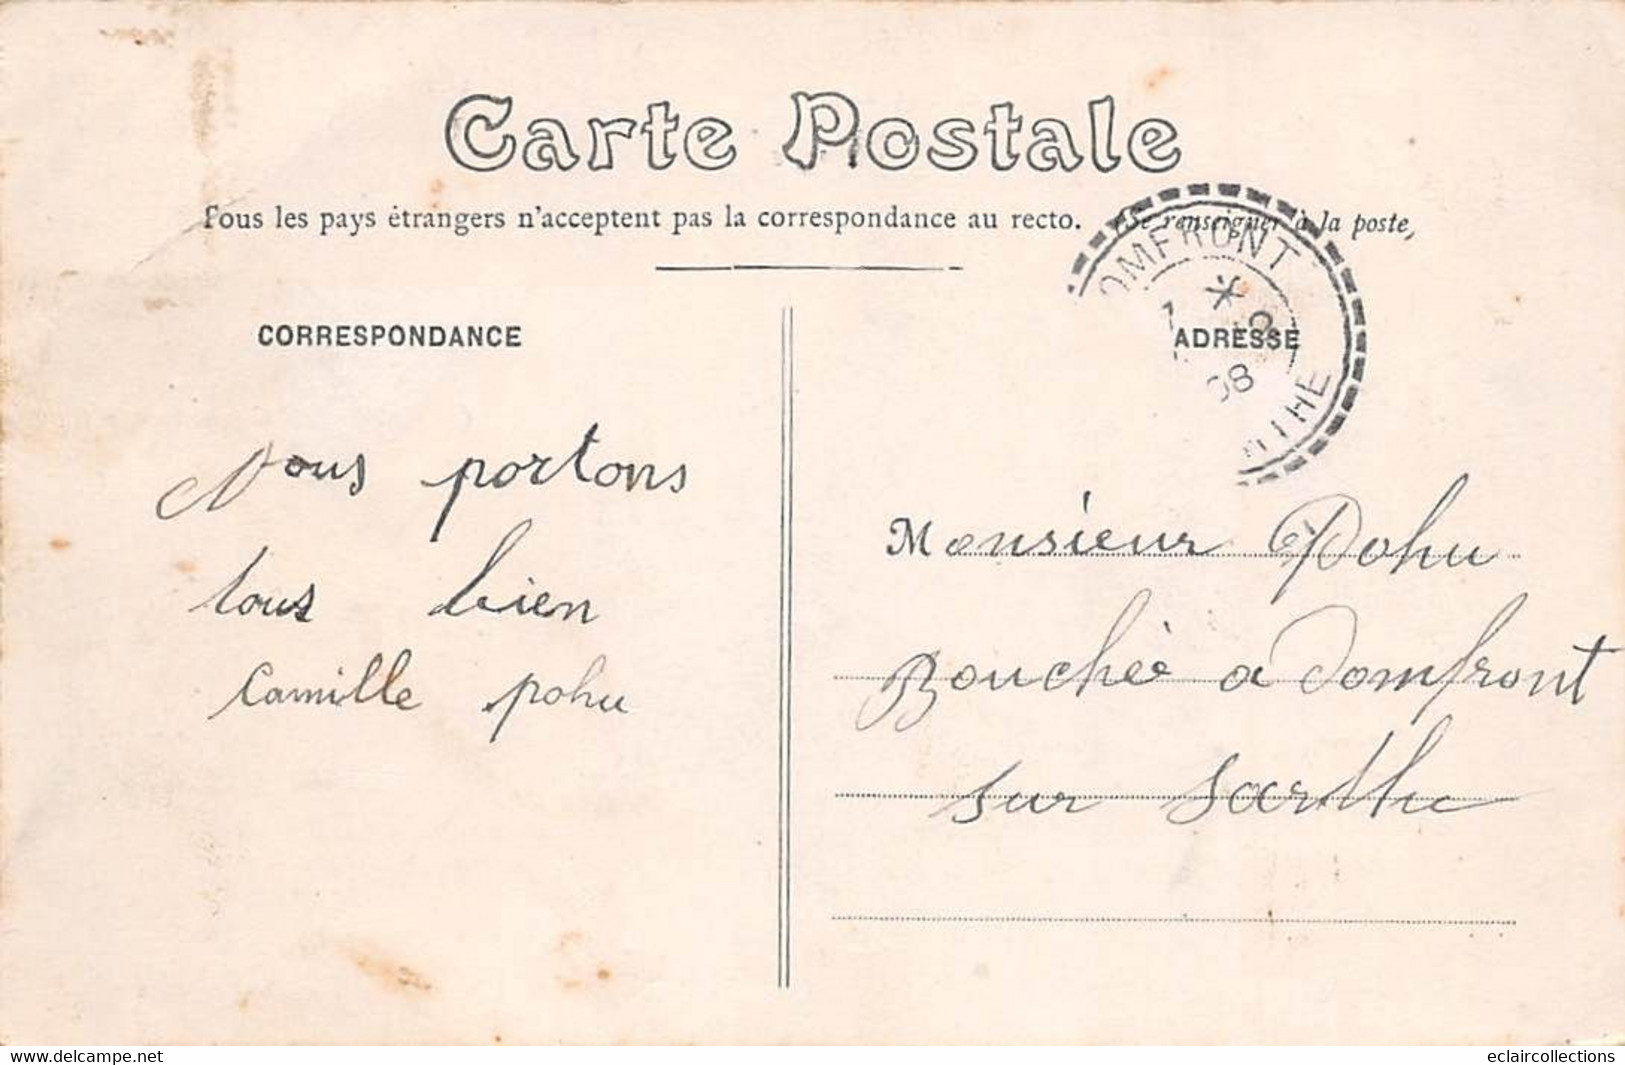 Carte Postale
Tous les pays étrangers n'acceptent pas la correspondance au recto. Se renseigner à la poste,
CORRESPONDANCE
ADRESSE
OMFRONT
08
THE
Nous portons
tous bien
Camille pohu
Monsieur Pohu
Bouché a Domfront
sur Sarthe
www.delcampe.net
eclaircollections